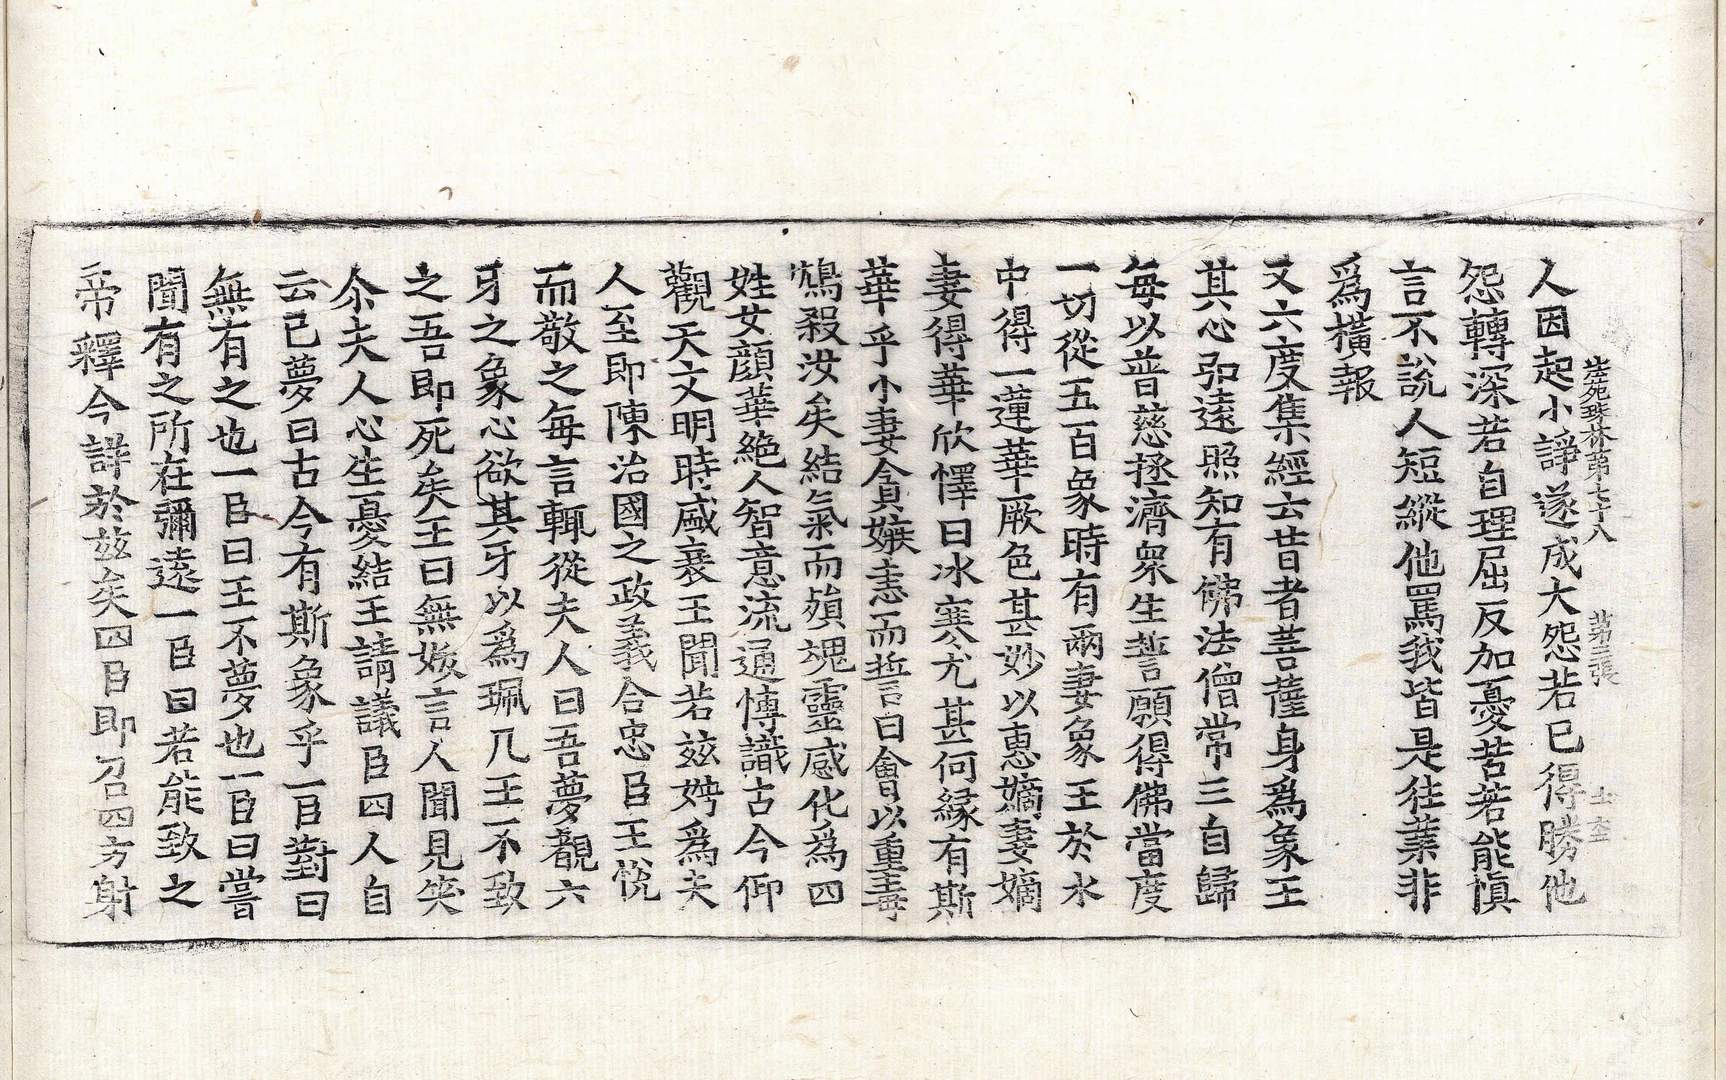 法苑珠林第七十八 第三張
人因起小諍遂成大怨若已得勝他
怨轉深若自理屈反加憂苦若能慎
言不說人短縱他罵我皆是往業非
爲橫報
又六度集經云昔者菩薩身爲象王
其心弘遠照知有佛法僧常三自歸
每以普慈拯濟衆生誓願得佛當度
一切從五百象時有兩妻象王於水
中得一蓮華厥色甚妙以惠嫡妻嫡
妻得華欣懌曰冰寒尤甚何緣有斯
華乎小妻貪嫉恚而誓曰會以重毒
鴆殺汝矣結氣而殞魂靈感化爲四
姓女顏華絕人智意流通博識古今仰
觀天文明時盛衰王聞若茲娉爲夫
人至即陳治國之政義合忠臣王悅
而敬之每言輒從夫人曰吾夢覩六
牙之象心欲其牙以爲珮几王不致
之吾即死矣王曰無妖言人聞見笑
尒夫人心生憂結王請議臣四人自
云已夢曰古今有斯象乎一臣對曰
無有之也一臣曰王不夢也一臣曰嘗
聞有之所在彌遠一臣曰若能致之
帝釋今詳於茲矣四臣即召四方射